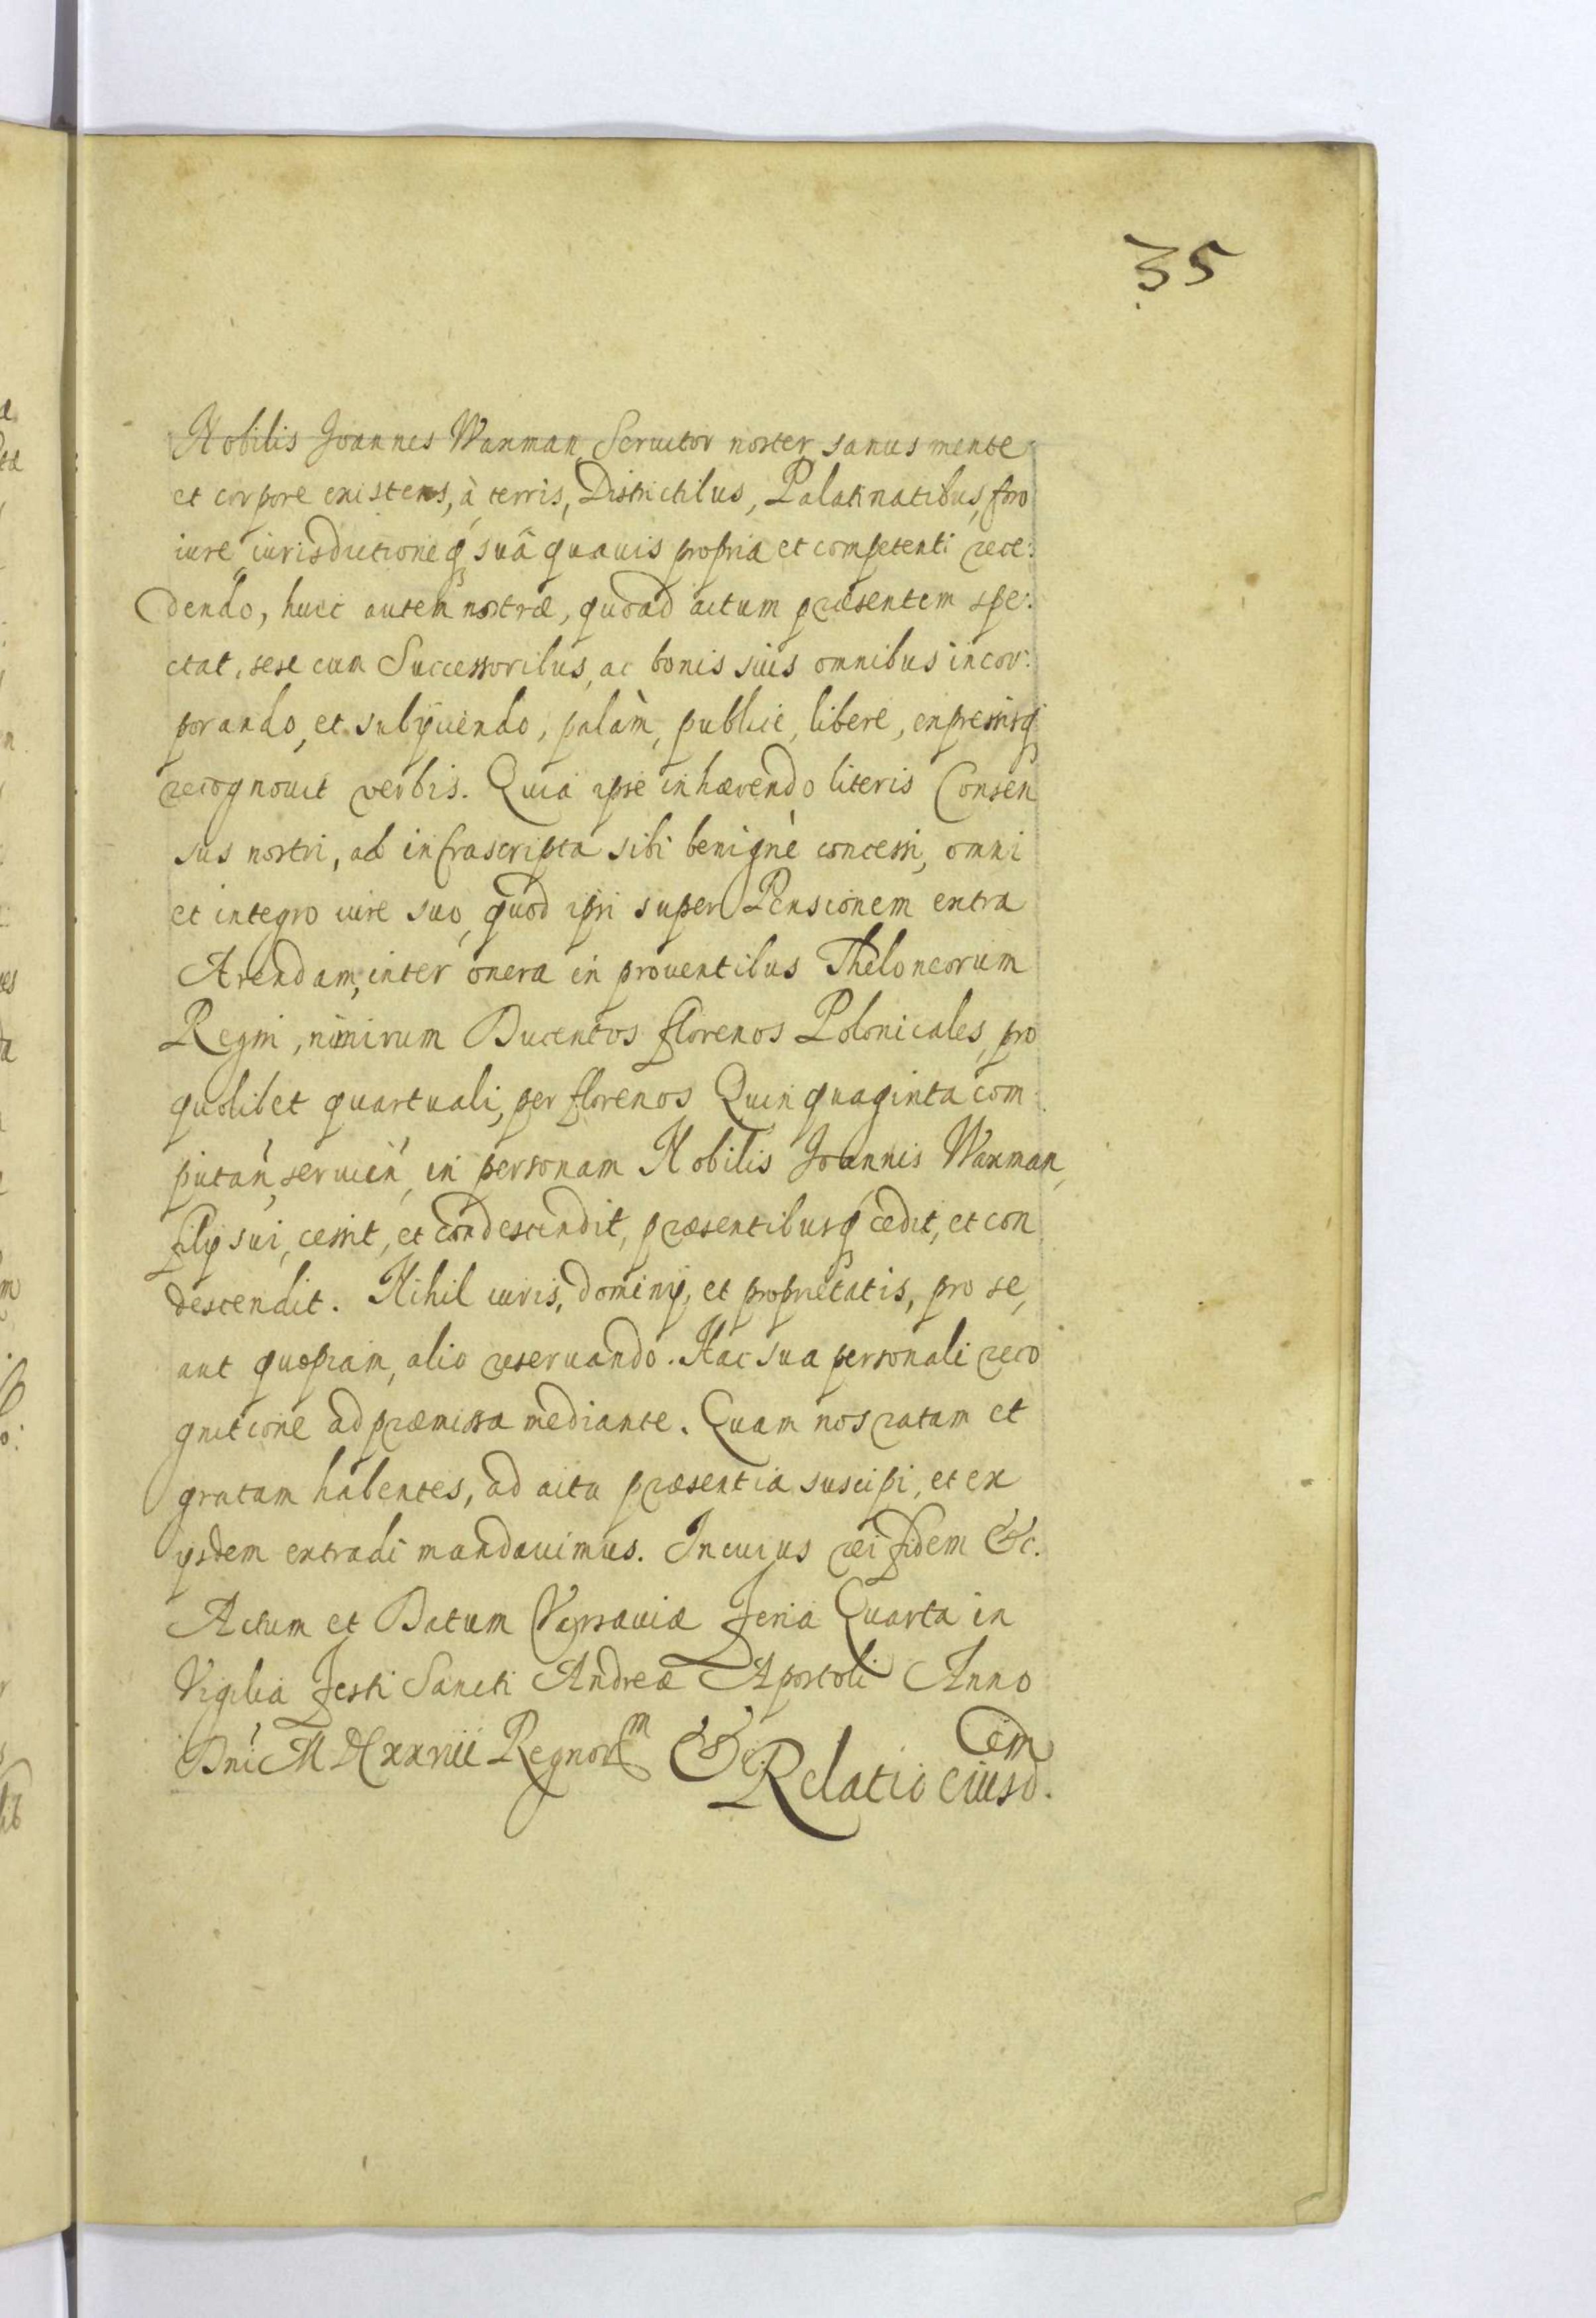 35
Nobilis Joannes Waxman, Seruitor noster, sanus mente
et corpore existens, à terris, Districtibus, Palatinatibus, foro
iure iurisdictioneq́ suâ quauis propria et competenti rece:
dendo, huic autem nostræ, quoad actum præsentem spe:
ctat, sese cum Successoribus, ac bonis suis omnibus incor:
porando, et subijciendo, palàm, publice, libere, expressisq́
recognouit verbis. Quia ipse inhærendo literis Consen
sus nostri, ad infrascripta sibi benignè concessi, omni
et integro iure suo, quod ipsi super Pensionem extra
Arendam, inter onera in prouentibus Theloneorum
Regni, nimirum Ducentos florenos Polonicales, pro
quolibet quartuali, per florenos Quinquaginta com:
putań, seruień, in personam Nobilis Joannis Waxman,
filij sui, cessit, et condescendit, præsentibusq́ cedit, et con
descendit. Nihil iuris, dominij, et proprietatis, pro se,
aut quopiam, alio reseruando. Hac sua personali reco
gnitione ad præmissa mediante. Quam nos ratam et
gratam habentes, ad acta præsentia suscipi, et ex
ijsdem extradi mandauimus. In cuius rei fidem &c.
Actum et Datum Varsauiæ Feria Quarta in
Vigilia Festi Sancti Andreæ Apostoli Anno
Dni M DCxxvii Regnorm &c.
Relatio eiusd. em